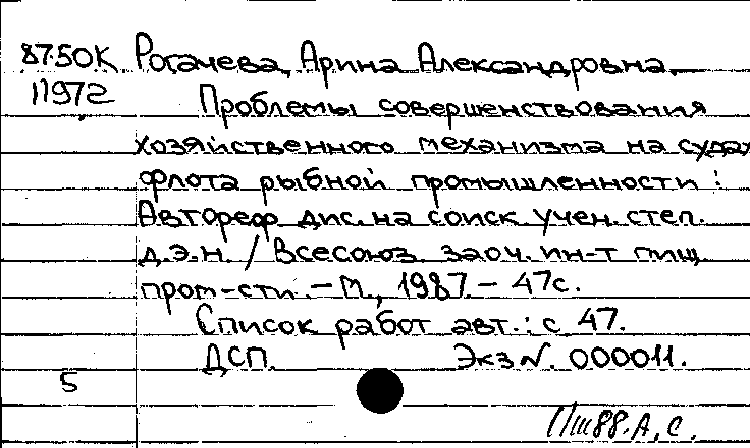 87.50К Рогачева, Арина Александровна.
11972 Проблемы совершенствования
хозяйственного механизма на судах
флота рыбной промышленности :
Автореф. дис. на соиск. учен. степ.
д.э.н. / Всесоюз. заоч. ин-т пищ.
пром-сти. – М., 1987. – 47с.
Список работ авт.: с. 47.
ДСП. Экз N. 000011.
5
88. А, С.